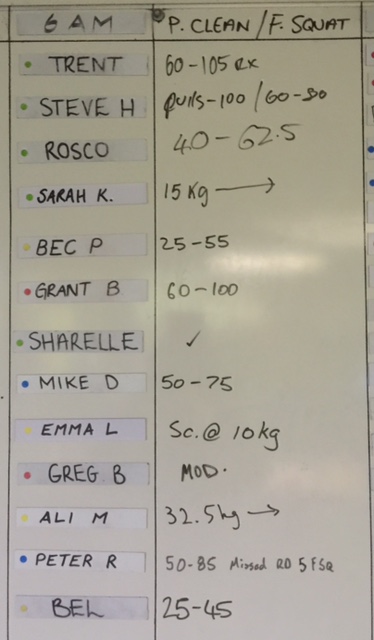 6 AM P. CLEAN / F. SQUAT
TRENT 60-105 RX
STEVE H Pulls-100 / 60-80
ROSCO 40-62.5
SARAH K. 15 Kg →
BEC P 25-55
GRANT B 60-100
SHARELLE ✓
MIKE D 50-75
EMMA L Sc. @ 10kg
GREG B MOD.
ALI M 32.5kg →
PETER R 50-85 Missed RD 5 FSQ
BEL 25-45